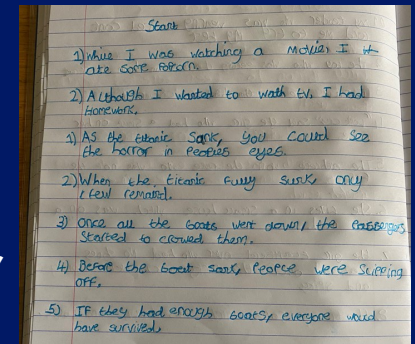 Start
1) While I was watching a movie, I
ate some popcorn.
2) Although I wanted to wath tv, I had
Homework.
1) As the titanic Sank, you could see
the horror in peoples eyes.
2) When the titanic fully sunk, only
few remained.
3) Once all the boats went down, the passengers
started to crowed them.
4) Before the boat sank, people were slipping
off.
5) If they had enough boats, everyone would
have survived.